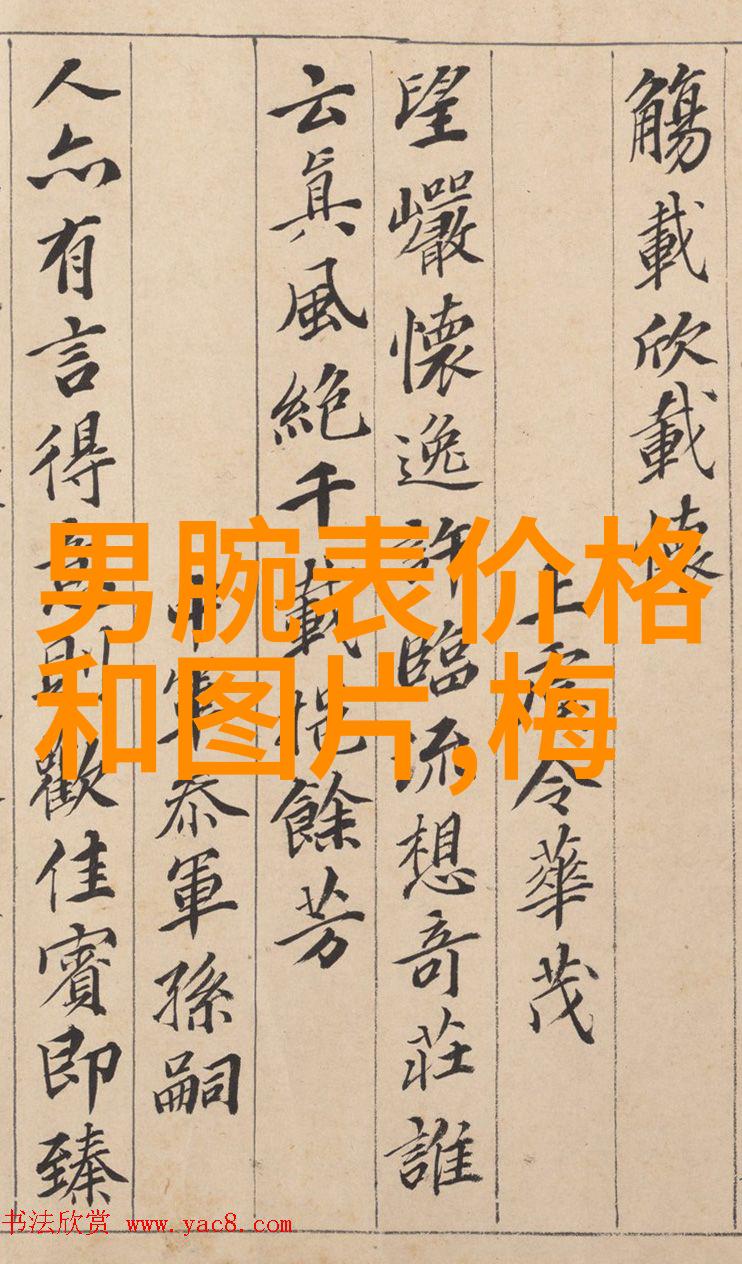 觴載欣載懷
上虞令華茂
望巖懷逸許臨流想奇莊誰
云眞風絶千載挹餘芳
中軍叅軍孫嗣
人亦有言得意則歡佳賓即臻
男腕表价格
和图片,梅
书法欣赏 www.yac8.com